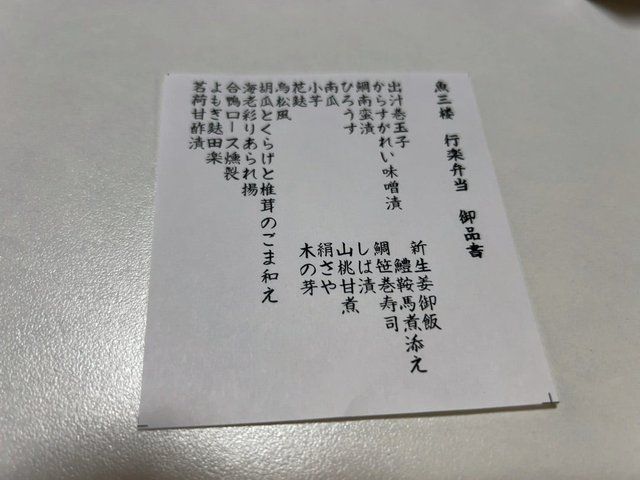 魚三楼 行楽弁当 御品書
出汁巻玉子
からすがれい味噌漬
鯛南蛮漬
ひろうす
南瓜
小芋
花麩
鳥松風
胡瓜とくらげと椎茸のごま和え
海老彩りあられ揚
合鴨ロース燻製
よもぎ麩田楽
茗荷甘酢漬
新生姜御飯
鱧鞍馬煮添え
鯛笹巻寿司
しば漬
山桃甘煮
絹さや
木の芽